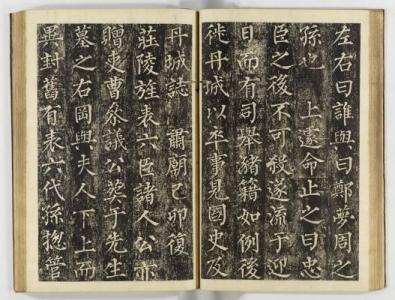 左右曰誰與曰鄭夢周之
孫也 上遽命止之曰忠
臣之後不可殺遂流于迎
日而有司舉瀦籍如例後
徙丹城以卒事見國史及
丹城誌 肅廟己卯復
莊陵旌表六臣諸人公亦
贈吏曹參議公葬于先生
墓之右岡與夫人下上而
異封舊有表六代孫摠管